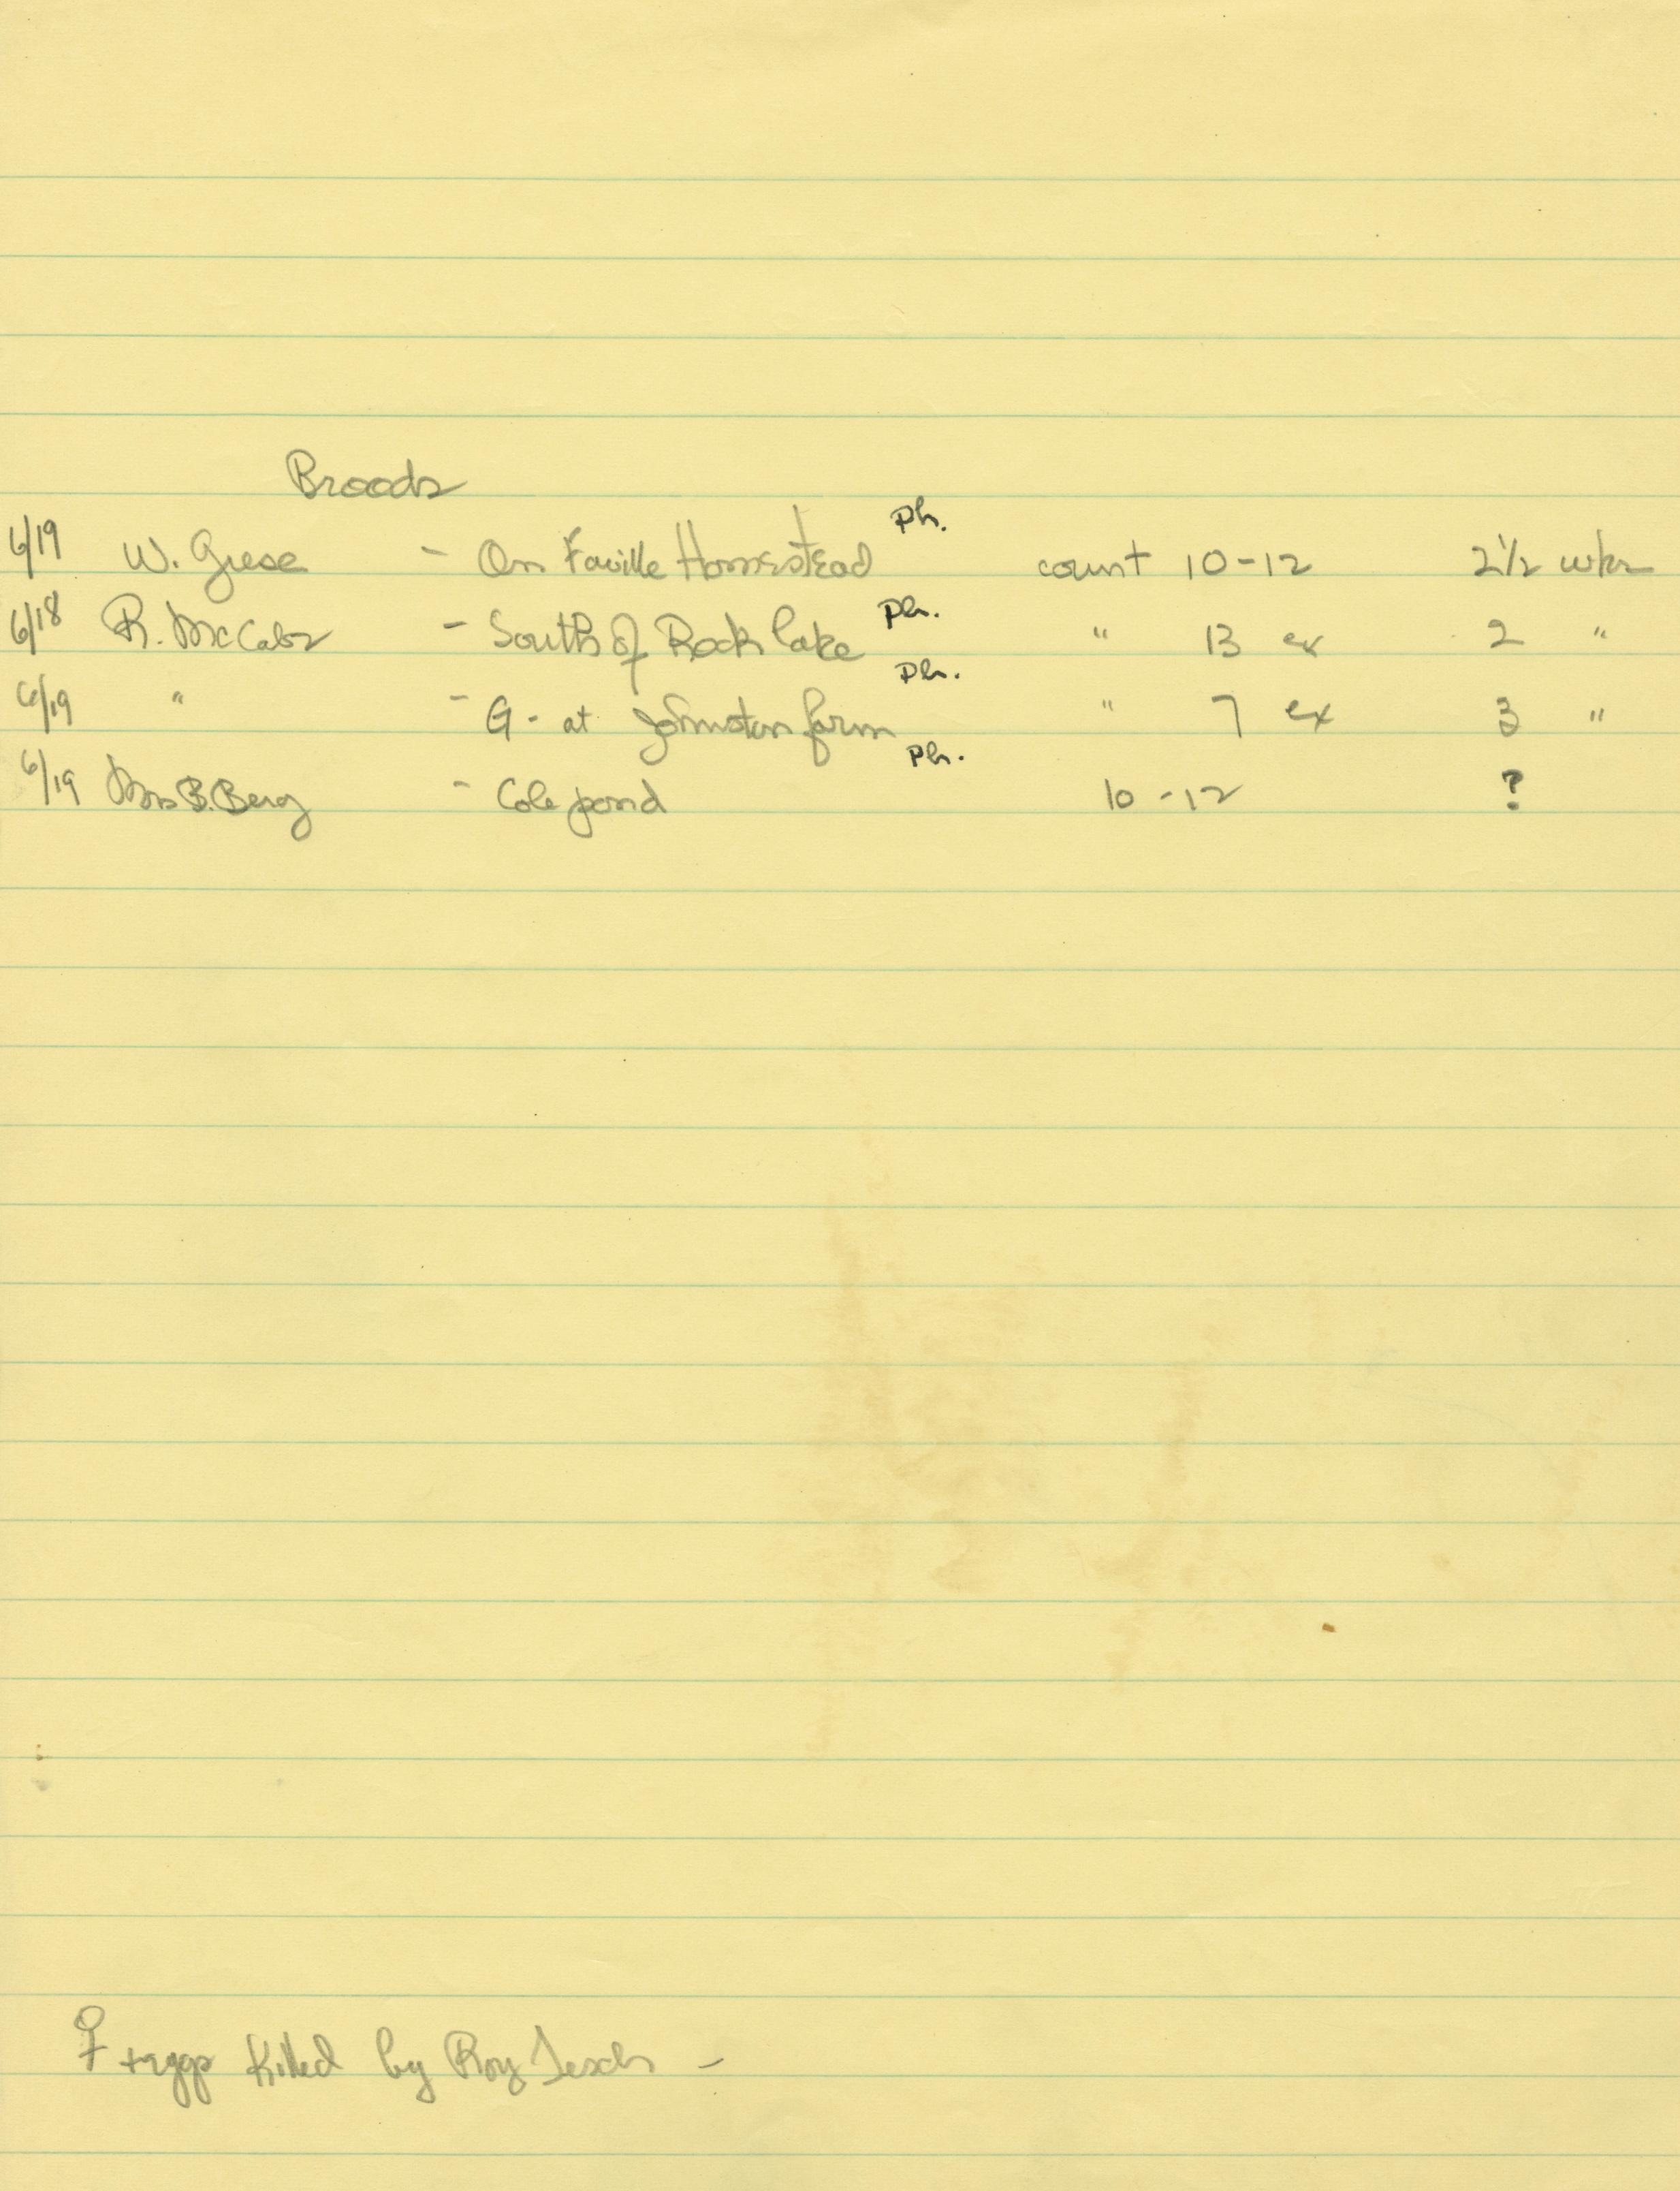 Broods
6/19 W. Giese - On Faville Homestead ph. count 10-12 2½ wks
6/18 R. McCabe - South of Rock lake ph. " 13 ex 2 "
6/19 " - G - at Johnston farm ph. " 7 ex 3 "
6/19 Mrs B. Berg - Cole pond ph. 10-12 ?
♀ + eggs killed by Roy Tesch -